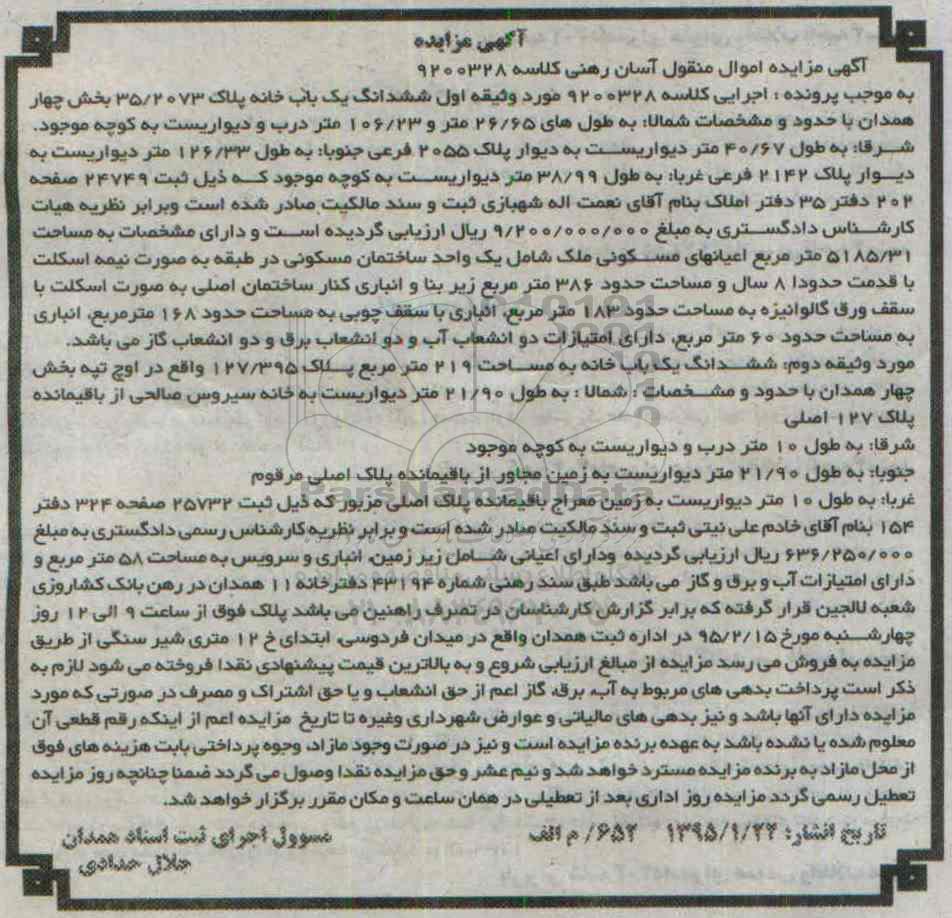 آگهی مزایده
آگهی مزایده اموال منقول آسان رهنی کلاسه ۹۲۰۰۳۲۸
به موجب پرونده : اجرایی کلاسه ۹۲۰۰۳۲۸ مورد وثیقه اول ششدانگ یک باب خانه پلاک ۳۵/۲۰۷۳ بخش چهار
همدان با حدود و مشخصات شمالا: به طول های ۲۶/۶۵ متر و ۱۰۶/۲۳ متر درب و دیواریست به کوچه موجود.
شرقا: به طول ۴۰/۶۷ متر دیواریست به دیوار پلاک ۲۰۵۵ فرعی جنوبا: به طول ۱۲۶/۳۳ متر دیواریست به
دیوار پلاک ۲۱۴۲ فرعی غربا: به طول ۳۸/۹۹ متر دیواریست به کوچه موجود که ذیل ثبت ۲۴۷۴۹ صفحه
۲۰۲ دفتر ۳۵ دفتر املاک بنام آقای نعمت اله شهبازی ثبت و سند مالکیت صادر شده است وبرابر نظریه هیات
کارشناس دادگستری به مبلغ ۹/۲۰۰/۰۰۰/۰۰۰ ریال ارزیابی گردیده است و دارای مشخصات به مساحت
۵۱۸۵/۳۱ متر مربع اعیانهای مسکونی ملک شامل یک واحد ساختمان مسکونی در طبقه به صورت نیمه اسکلت
با قدمت حدودا ۸ سال و مساحت حدود ۳۸۶ متر مربع زیر بنا و انباری کنار ساختمان اصلی به صورت اسکلت با
سقف ورق گالوانیزه به مساحت حدود ۱۸۳ متر مربع، انباری با سقف چوبی به مساحت حدود ۱۶۸ مترمربع، انباری
به مساحت حدود ۶۰ متر مربع، دارای امتیازات دو انشعاب آب و دو انشعاب برق و دو انشعاب گاز می باشد.
مورد وثیقه دوم: ششدانگ یک باب خانه به مساحت ۲۱۹ متر مربع پلاک ۱۲۷/۳۹۵ واقع در اوچ تپه بخش
چهار همدان با حدود و مشخصات : شمالا : به طول ۲۱/۹۰ متر دیواریست به خانه سیروس صالحی از باقیمانده
پلاک ۱۲۷ اصلی
شرقا: به طول ۱۰ متر درب و دیواریست به کوچه موجود
جنوبا: به طول ۲۱/۹۰ متر دیواریست به زمین مجاور از باقیمانده پلاک اصلی مرقوم
غربا: به طول ۱۰ متر دیواریست به زمین معراج باقیمانده پلاک اصلی مزبور که ذیل ثبت ۲۵۷۳۲ صفحه ۳۲۴ دفتر
۱۵۴ بنام آقای خادم علی نیتی ثبت و سند مالکیت صادر شده است و برابر نظریه کارشناس رسمی دادگستری به مبلغ
۶۳۶/۲۵۰/۰۰۰ ریال ارزیابی گردیده ودارای اعیانی شامل زیر زمین، انباری و سرویس به مساحت ۵۸ متر مربع و
دارای امتیازات آب و برق و گاز می باشد طبق سند رهنی شماره ۴۳۱۹۴ دفترخانه ۱۱ همدان در رهن بانک کشاروزی
شعبه لالجین قرار گرفته که برابر گزارش کارشناسان در تصرف راهنین می باشد پلاک فوق از ساعت ۹ الی ۱۲ روز
چهارشنبه مورخ ۹۵/۲/۱۵ در اداره ثبت همدان واقع در میدان فردوسی، ابتدای خ ۱۲ متری شیر سنگی از طریق
مزایده به فروش می رسد مزایده از مبالغ ارزیابی شروع و به بالاترین قیمت پیشنهادی نقدا فروخته می شود لازم به
ذکر است پرداخت بدهی های مربوط به آب، برق، گاز اعم از حق انشعاب و یا حق اشتراک و مصرف در صورتی که مورد
مزایده دارای آنها باشد و نیز بدهی های مالیاتی و عوارض شهرداری وغیره تا تاریخ مزایده اعم از اینکه رقم قطعی آن
معلوم شده یا نشده باشد به عهده برنده مزایده است و نیز در صورت وجود مازاد، وجوه پرداختی بابت هزینه های فوق
از محل مازاد به برنده مزایده مسترد خواهد شد و نیم عشر و حق مزایده نقدا وصول می گردد ضمنا چنانچه روز مزایده
تعطیل رسمی گردد مزایده روز اداری بعد از تعطیلی در همان ساعت و مکان مقرر برگزار خواهد شد.
تاریخ انتشار: ۱۳۹۵/۱/۲۲ ۶۵۲/ م الف
مسوول اجرای ثبت اسناد همدان
جلال حدادی